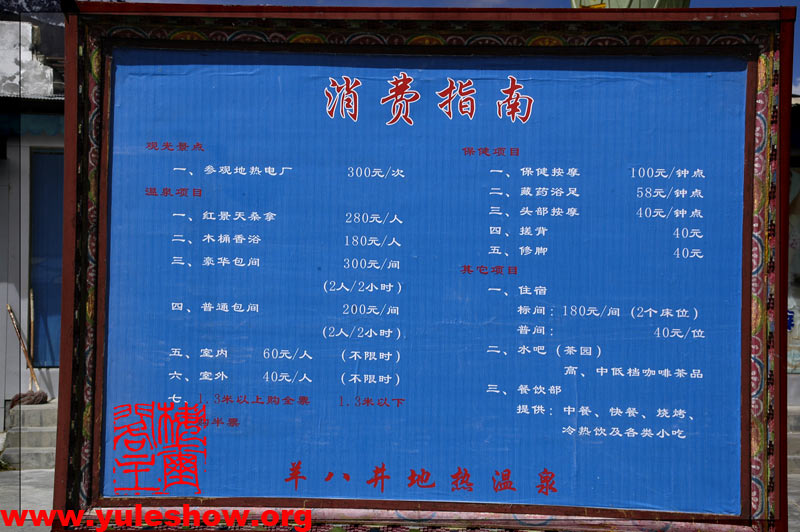 消费指南
观光景点
一、参观地热电厂 300元/次
温泉项目
一、红景天桑拿 280元/人
二、木桶香浴 180元/人
三、豪华包间 300元/间
(2人/2小时)
四、普通包间 200元/间
(2人/2小时)
五、室内 60元/人 (不限时)
六、室外 40元/人 (不限时)
七、1.3米以上购全票 1.3米以下
购半票
保健项目
一、保健按摩 100元/钟点
二、藏药浴足 58元/钟点
三、头部按摩 40元/钟点
四、搓背 40元
五、修脚 40元
其它项目
一、住宿
标间：180元/间 (2个床位)
普间： 40元/位
二、水吧（茶园）
高、中低档咖啡茶品
三、餐饮部
提供：中餐、快餐、烧烤、
冷热饮及各类小吃
羊八井地热温泉
www.yuleshow.org